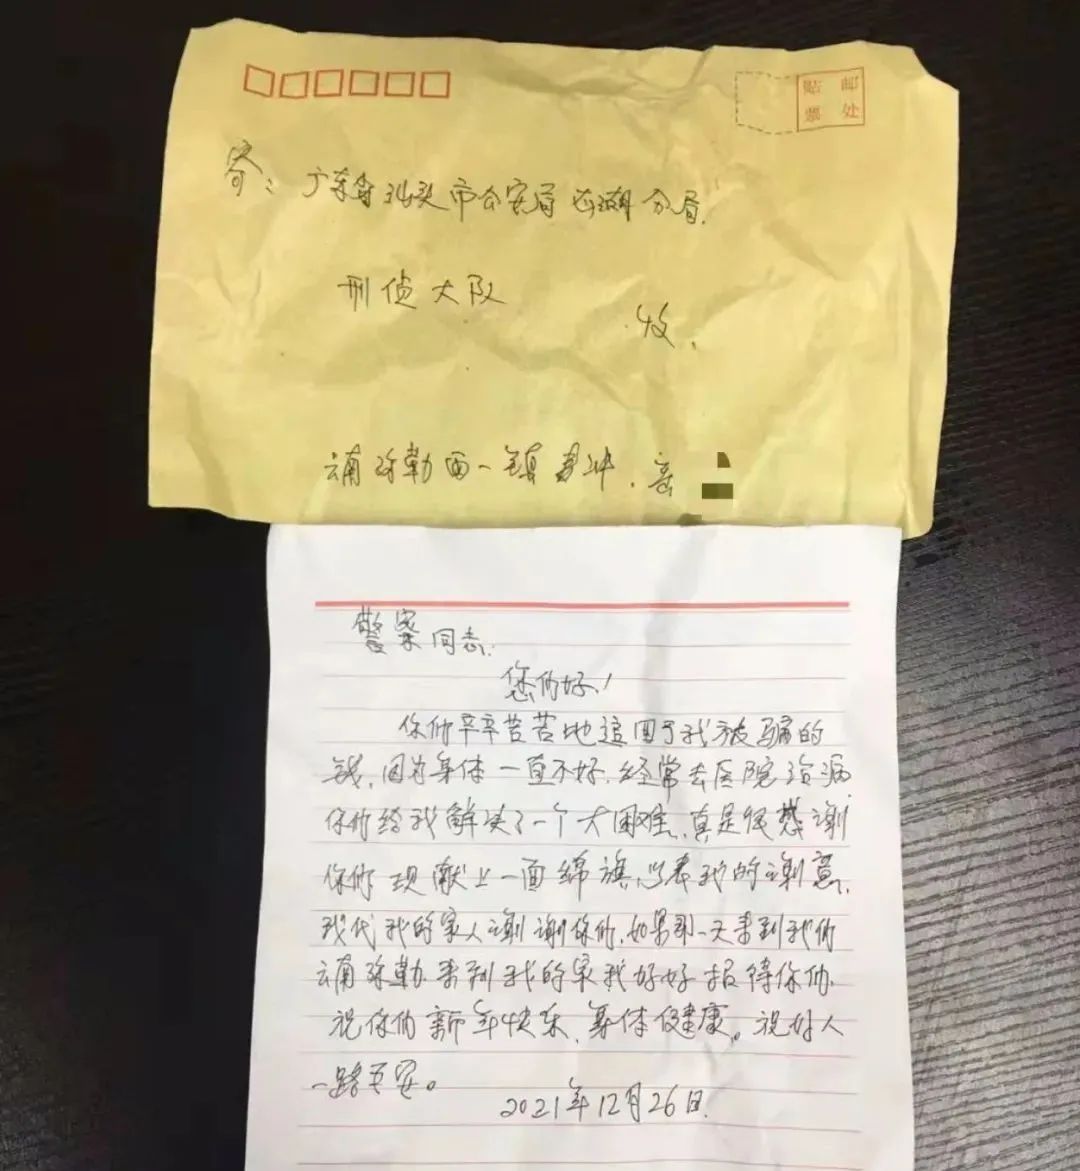 贴 邮
票 处
寄:广东省汕头市公安局龙湖分局.
刑侦大队
收.
云南弥勒西一镇
警察同志:
您们好!
你们辛辛苦苦地追回了我被骗的
钱,因为身体一直不好.经常去医院治病
你们给我解决了一个大困难,真是很感谢
你们 现献上一面绵旗,以表我的谢意.
我代我的家人谢谢你们.如果那一天来到我们
云南弥勒.来到我的家我好好招待你们.
祝你们新年快乐、身体健康。祝好人
一路平安。
2021年12月26日.